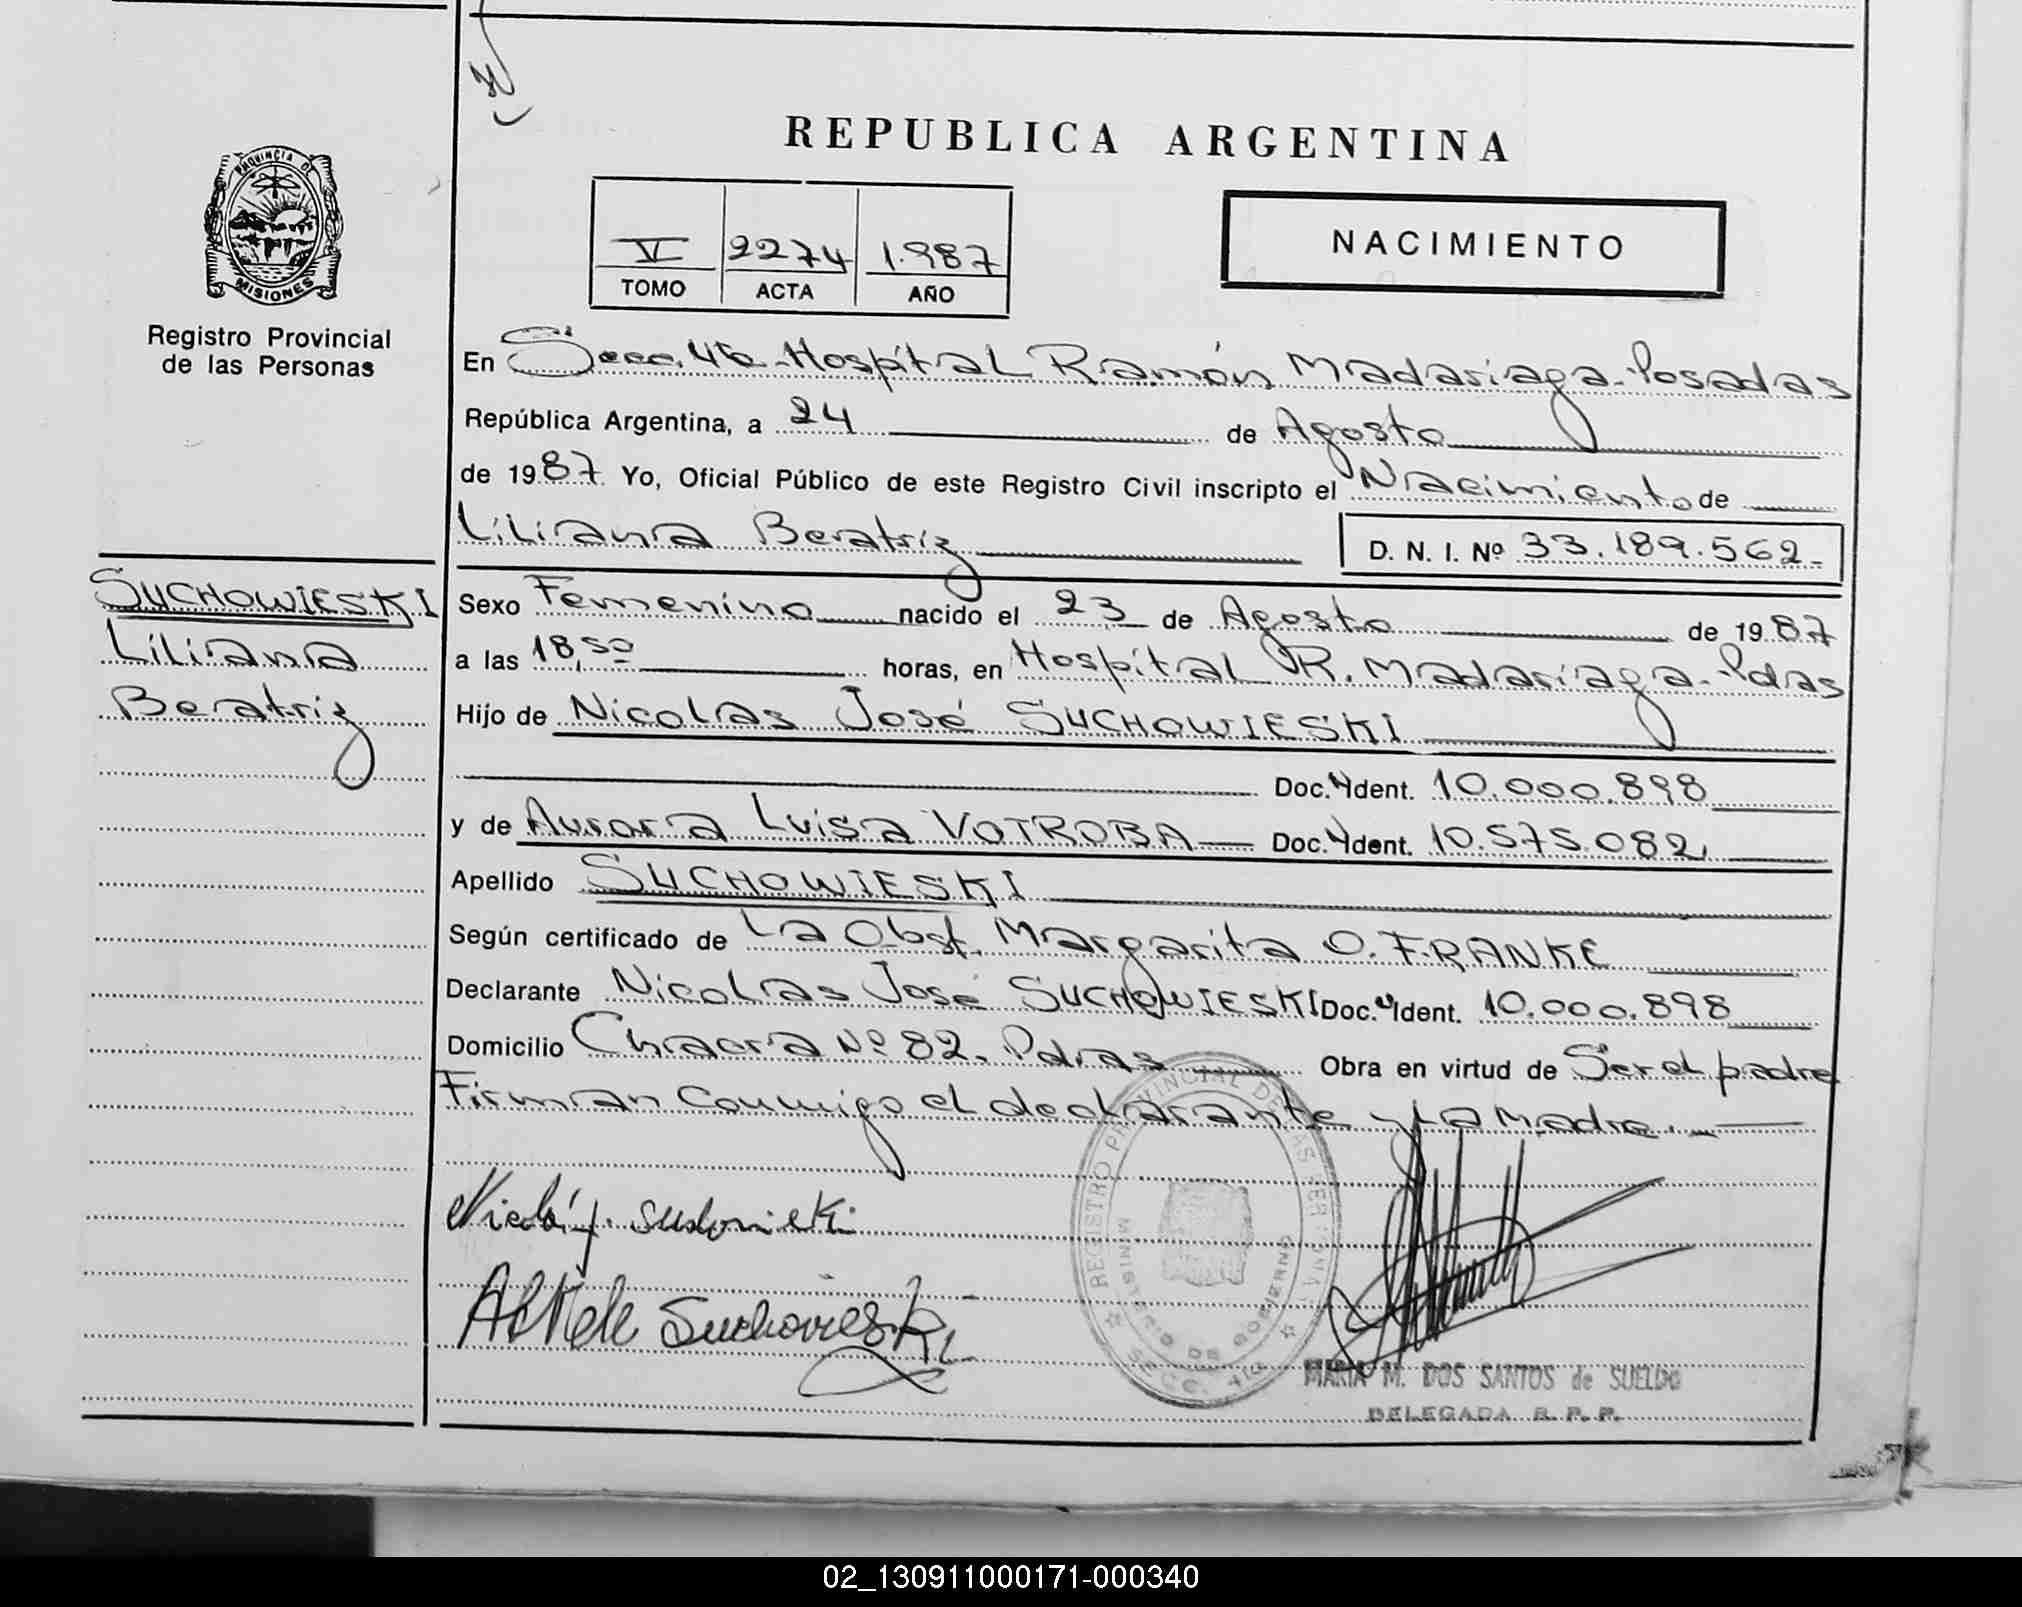 REPUBLICA ARGENTINA
PROVINCIA DE
MISIONES
Registro Provincial
de las Personas
V 2274 1.987
TOMO ACTA AÑO
NACIMIENTO
En Secc. 4ta. Hospital Ramón Madariaga - Posadas
República Argentina, a 24 de Agosto
de 1987 Yo, Oficial Público de este Registro Civil inscripto el Nacimiento de
Liliana Beatriz D. N. I. Nº 33.189.562-
SUCHOWIESKI
Liliana
Beatriz
Sexo Femenino nacido el 23 de Agosto de 1987
a las 18,50 horas, en Hospital R. Madariaga - Pdas
Hijo de Nicolas José SUCHOWIESKI
Doc. Ident. 10.000.898
y de Aurora Luisa VOTROBA Doc. Ident. 10.575.082
Apellido SUCHOWIESKI
Según certificado de La Obst. Margarita O. FRANKE
Declarante Nicolas José SUCHOWIESKI Doc. Ident. 10.000.898
Domicilio Chacra Nº 82. Pdas Obra en virtud de Ser el padre
Firman Conmigo el declarante y La Madre.
REGISTRO PROVINCIAL DE LAS PERSONAS
MINISTERIO DE GOBIERNO
SECC. 4ta
MARIA M. DOS SANTOS de SUELDO
DELEGADA R. P. P.
02_130911000171-000340